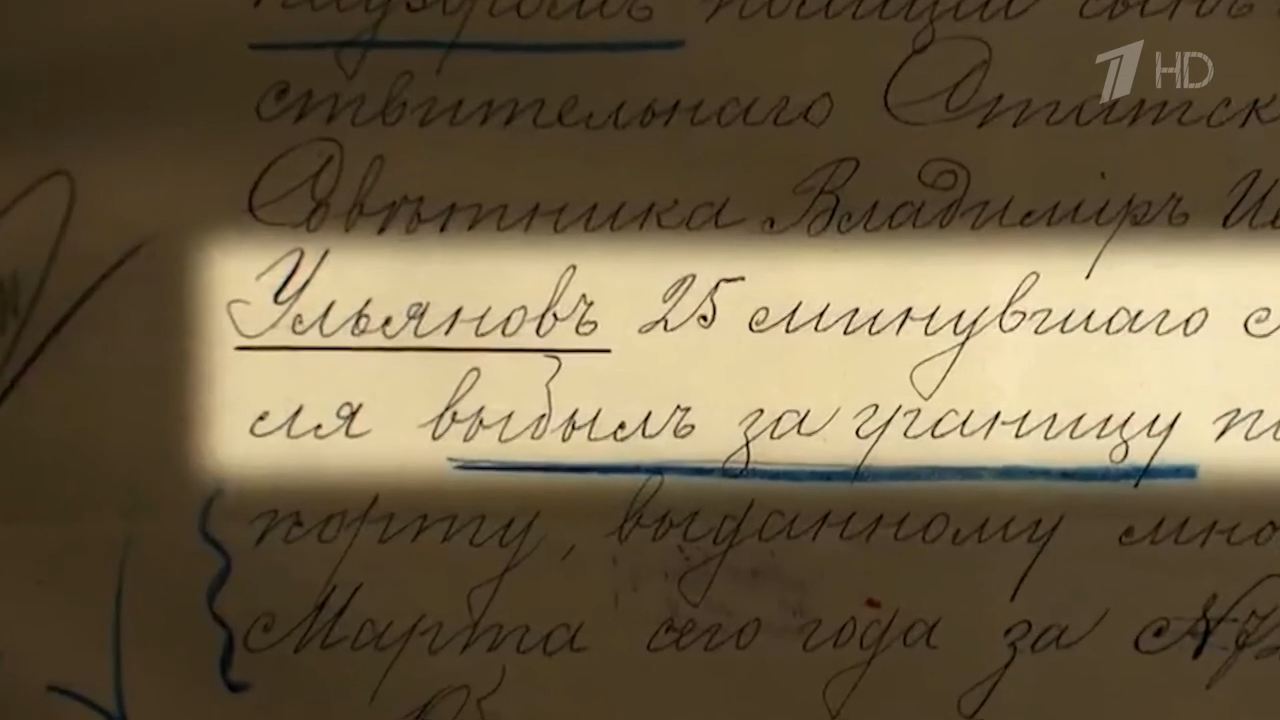 1 HD
ствительнаго Статск
Совѣтника Владиміръ Ил
Ульяновъ 25 минувшаго
ля выбылъ за границу по
порту, выданному мно
Марта сего года за №